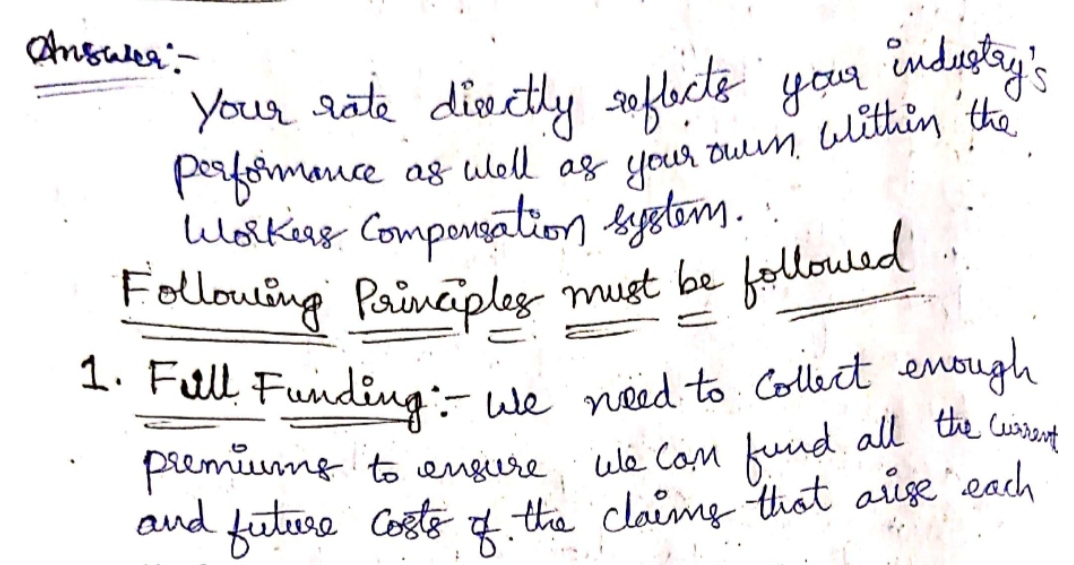 Answer:-
Your rate directly reflects your industry's
performance as well as your own within the
Workers Compensation system.
Following Principles must be followed
1. Full Funding:- We need to collect enough
premiums to ensure we can fund all the current
and future costs of the claims that arise each